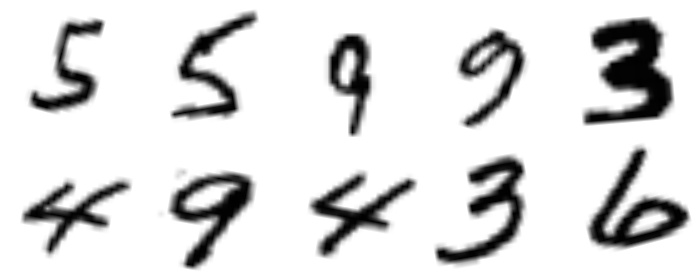 5 5 9 9 3
4 9 4 3 6